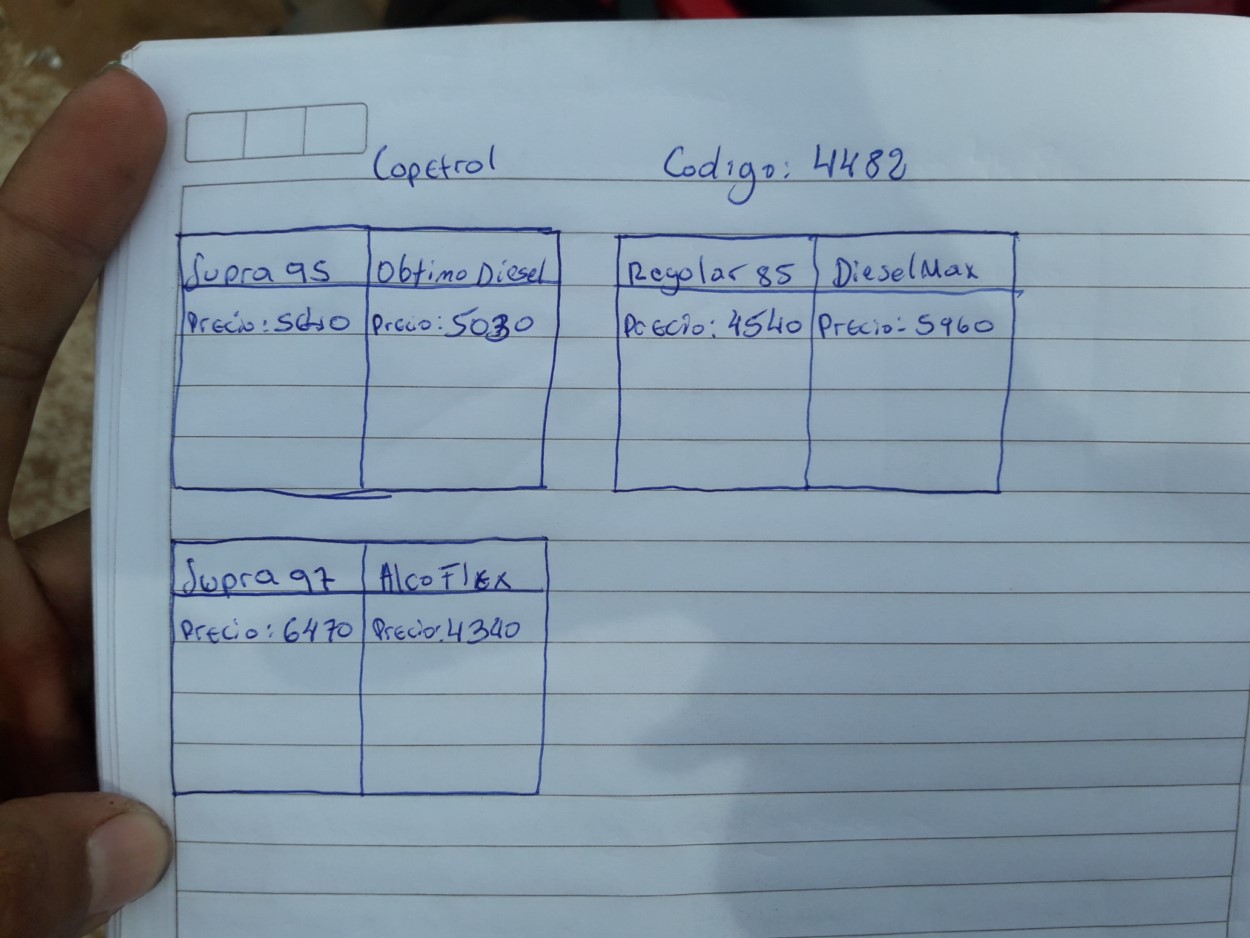 Copetrol Codigo: 4482
Supra 95 Obtimo Diesel Regolar 85 Diesel Max
Precio: Precio: 5030 Precio: 4540 Precio: 5960
Supra 97 Alco Flex
Precio: 6470 Precio: 4340